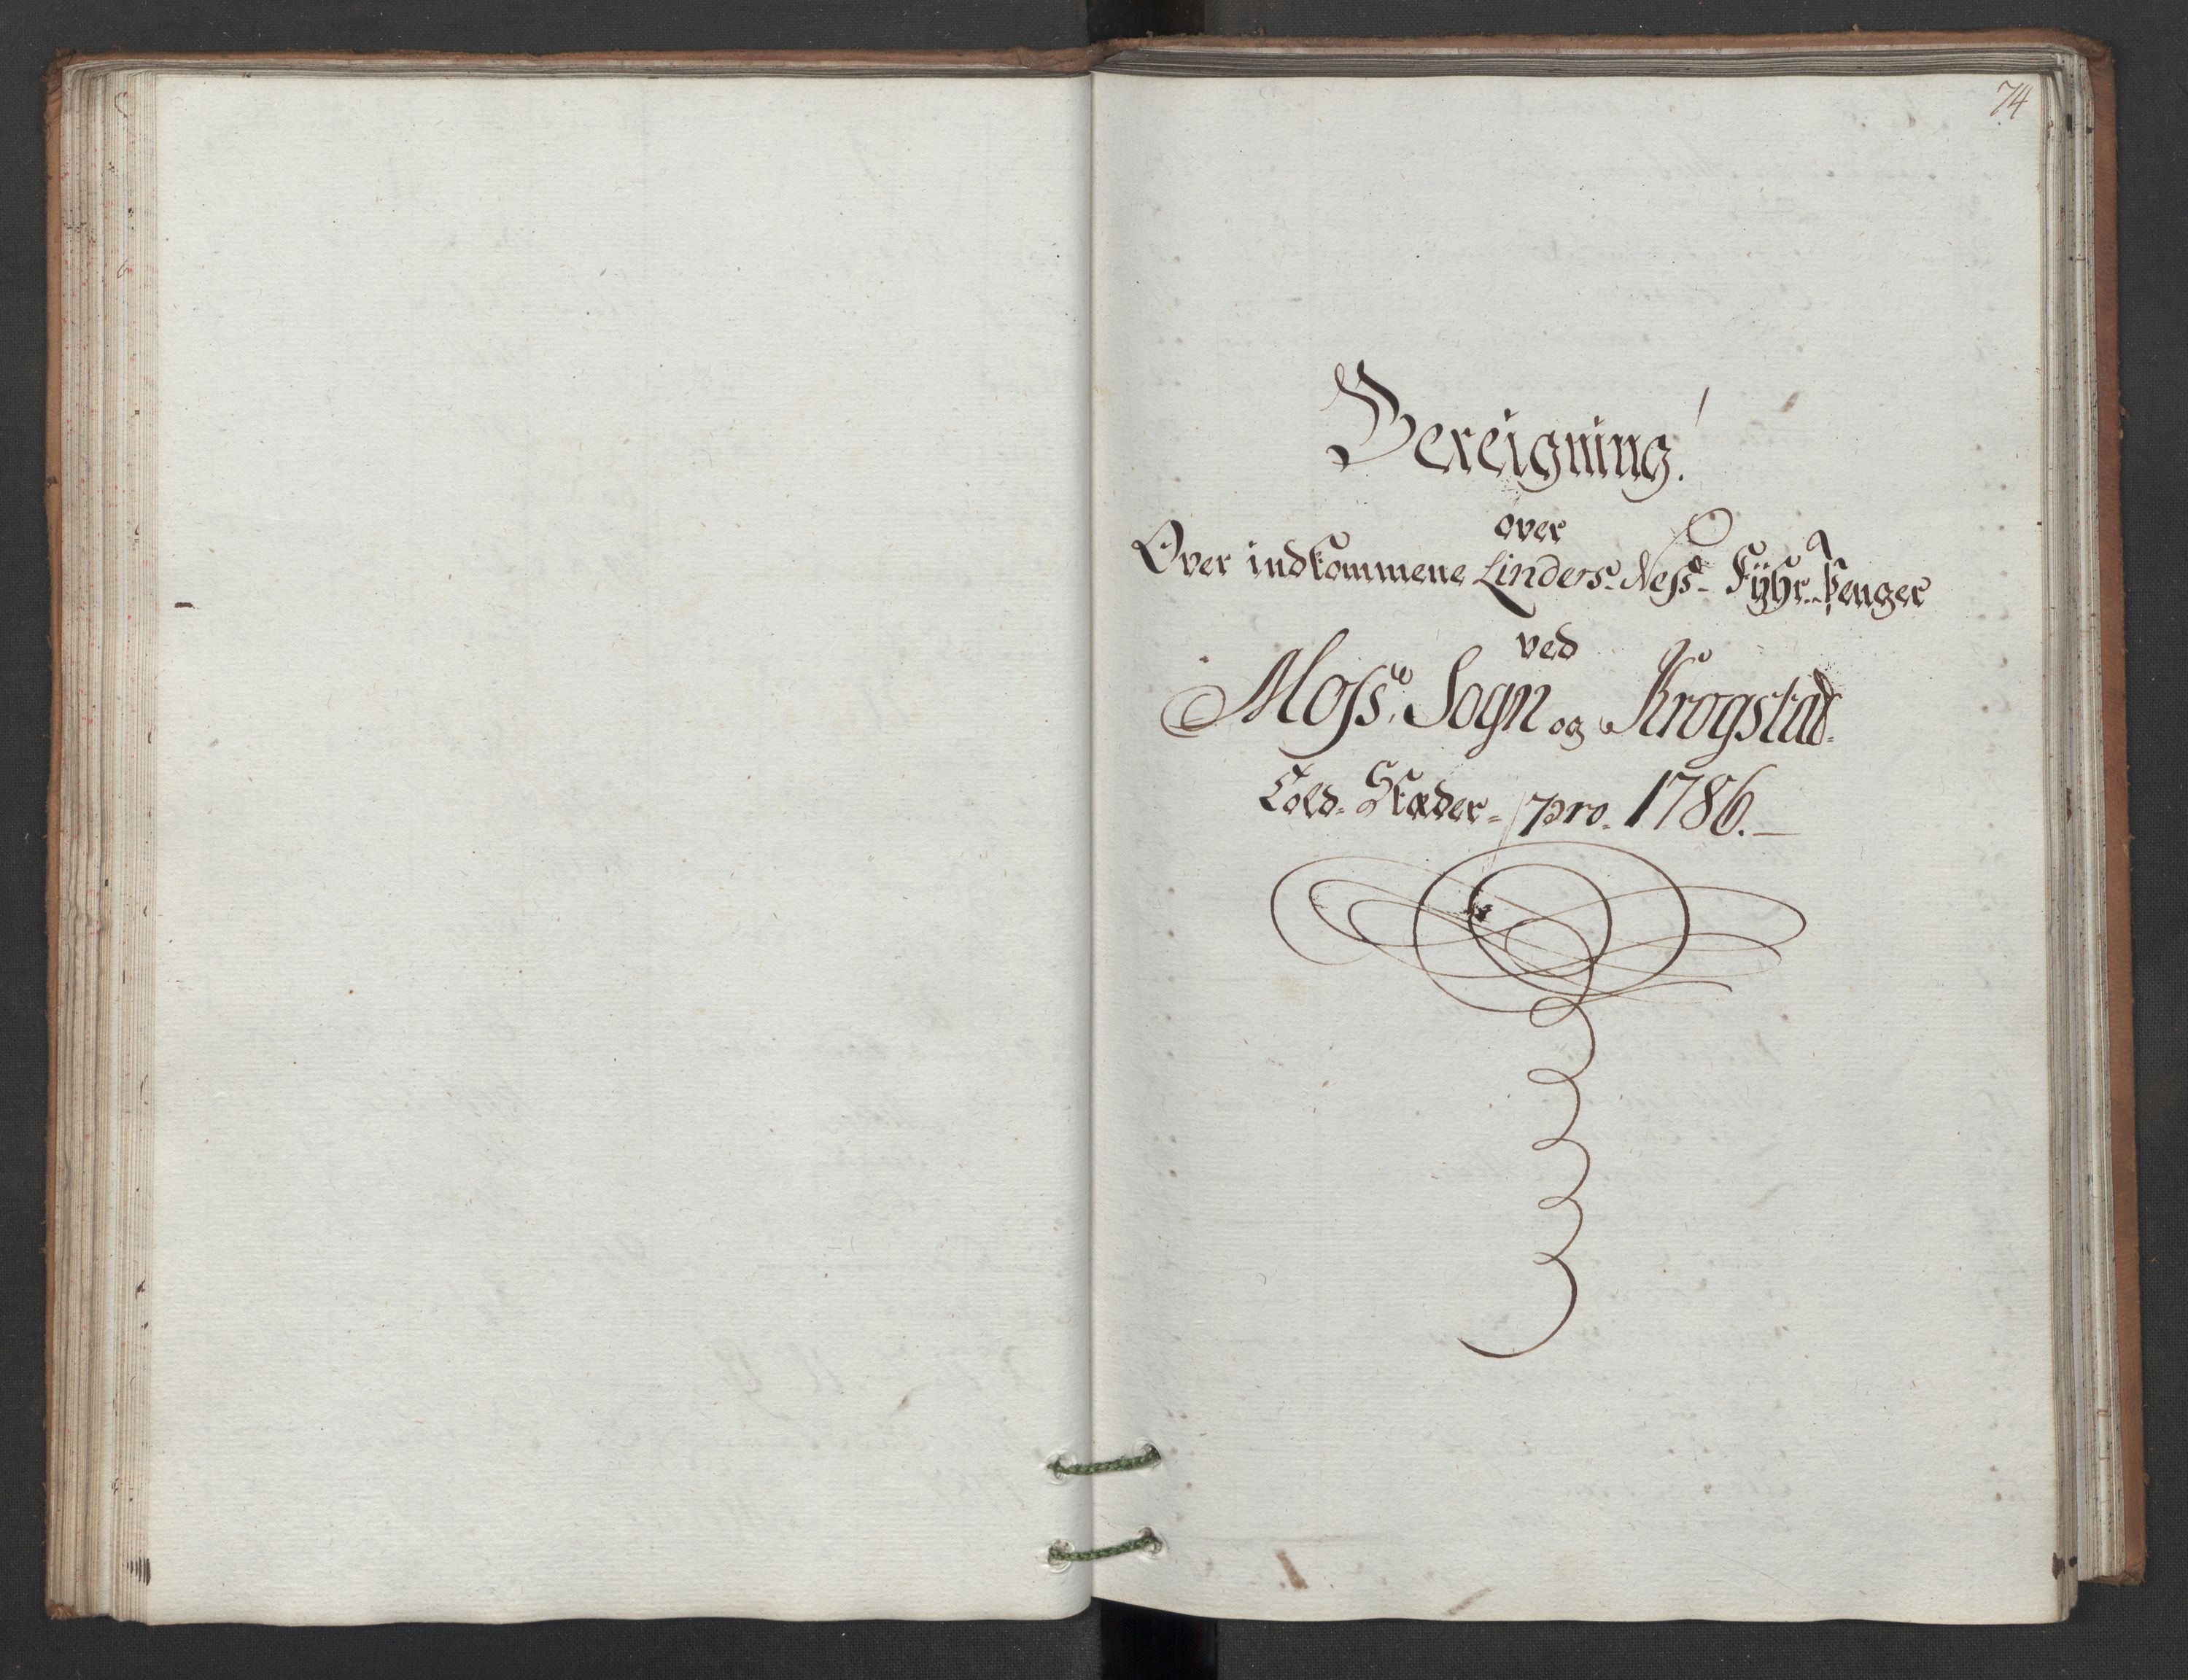 74
Bereigning.
over
Over indkommene Linders-Ness- Fÿhr-Penger
ved
Moss, Sogn og Krogstad-
Told-Stæder- pro. 1786.-